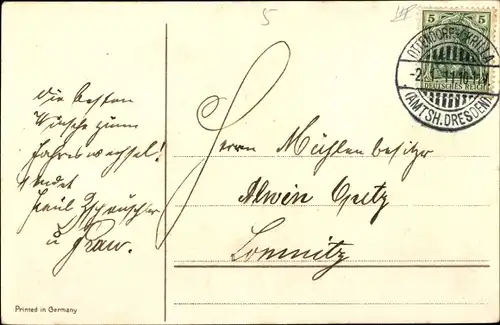 5
5 5
DEUTSCHES REICH
OTTENDORF-OKRILLA
-2.1.11.10-11V.
(AMTSH. DRESDEN)
die besten
Wünsche zum
Jahreswechsel!
sendet
Paul
u Frau.
Herrn Mühlenbesitzer
Alwin Opitz
Lomnitz
Printed in Germany